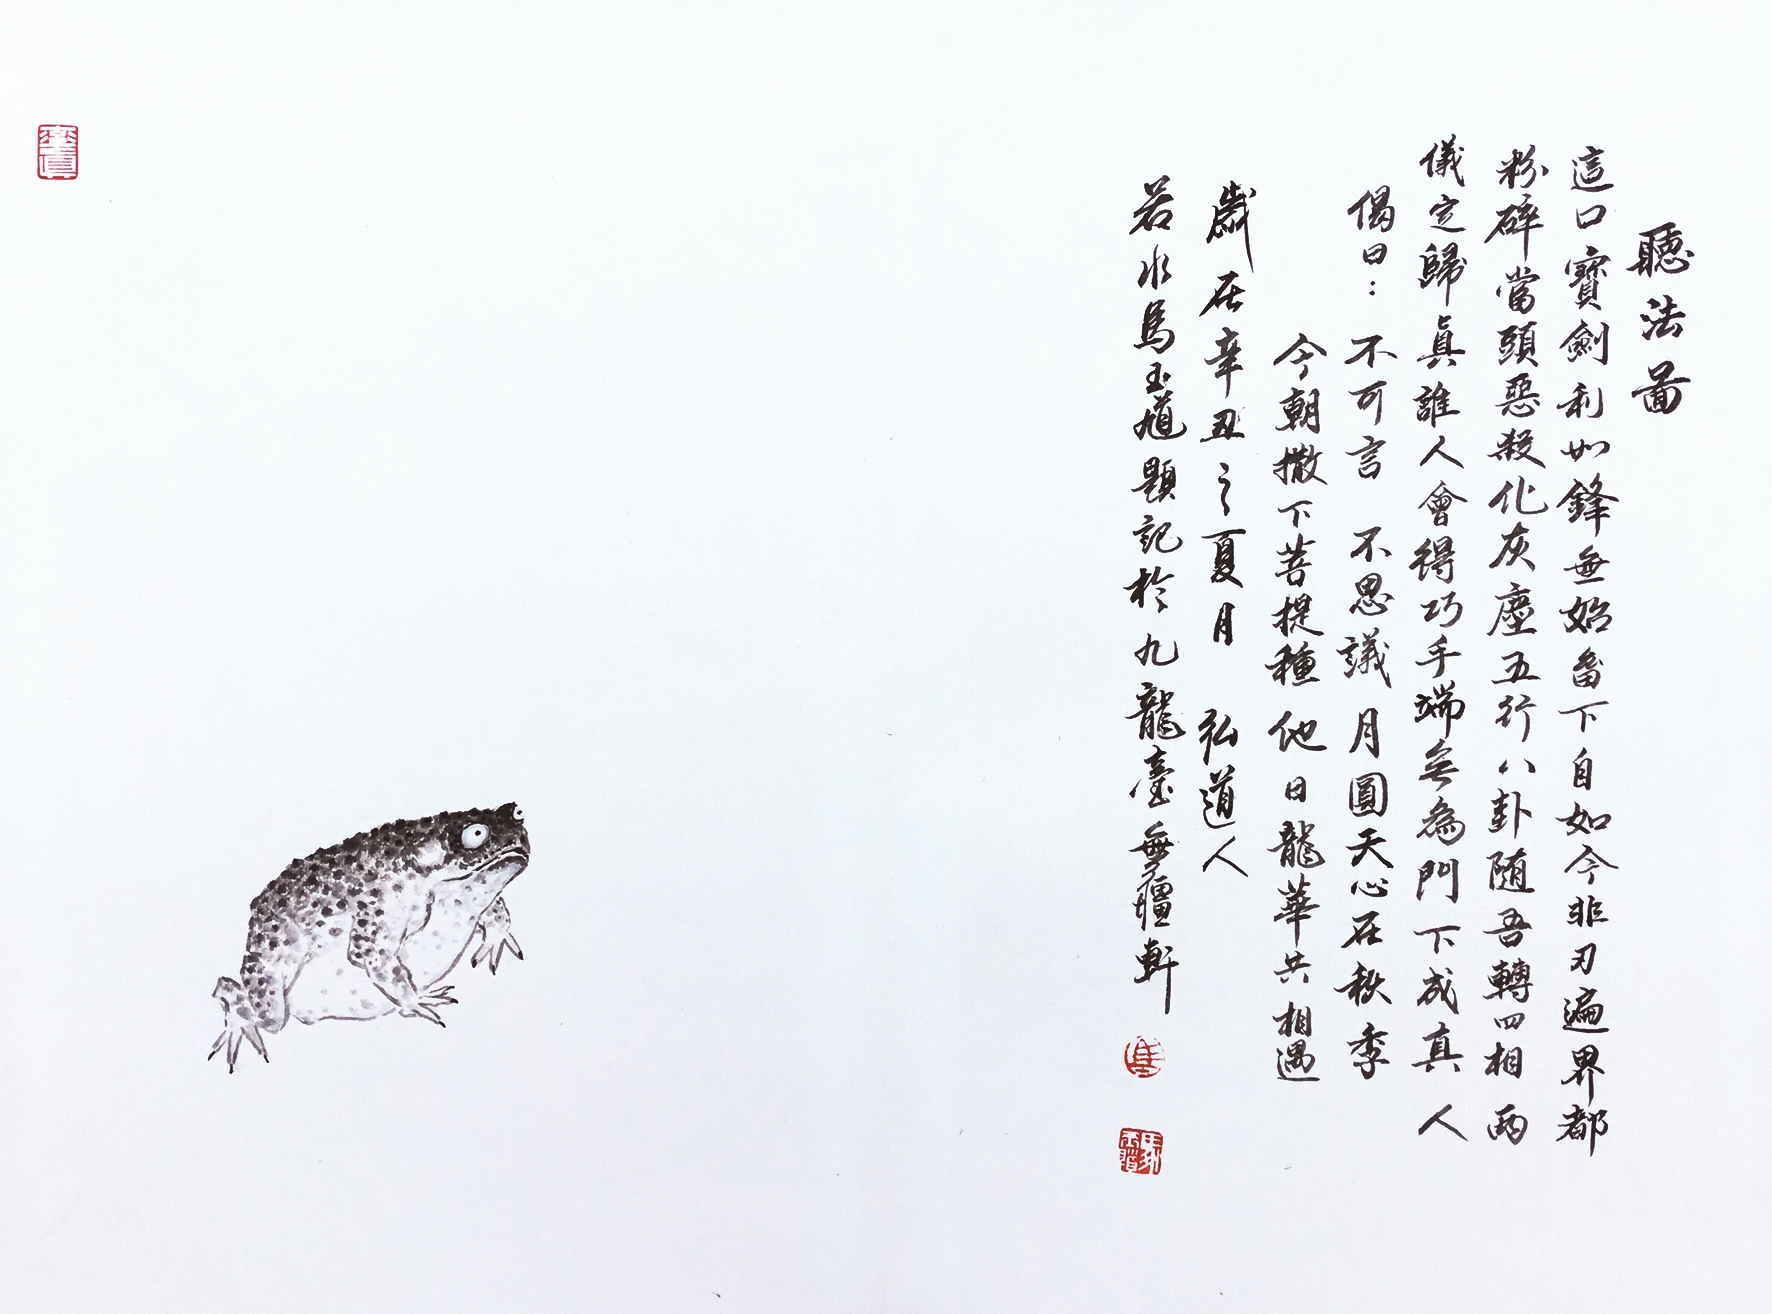 聽法圖
這口寶劍利如鋒無始畱下自如今非刃遍界都
粉碎當頭惡殺化灰塵五行八卦随吾轉四相兩
儀定歸真誰人會得巧手端無為門下成真人
偈曰：不可言 不思議 月圓天心在秋季
今朝撒下菩提種 他日龍華共相遇
歲在辛丑之夏月 弘道人
若水馬玉馗題記於九龍臺無疆軒